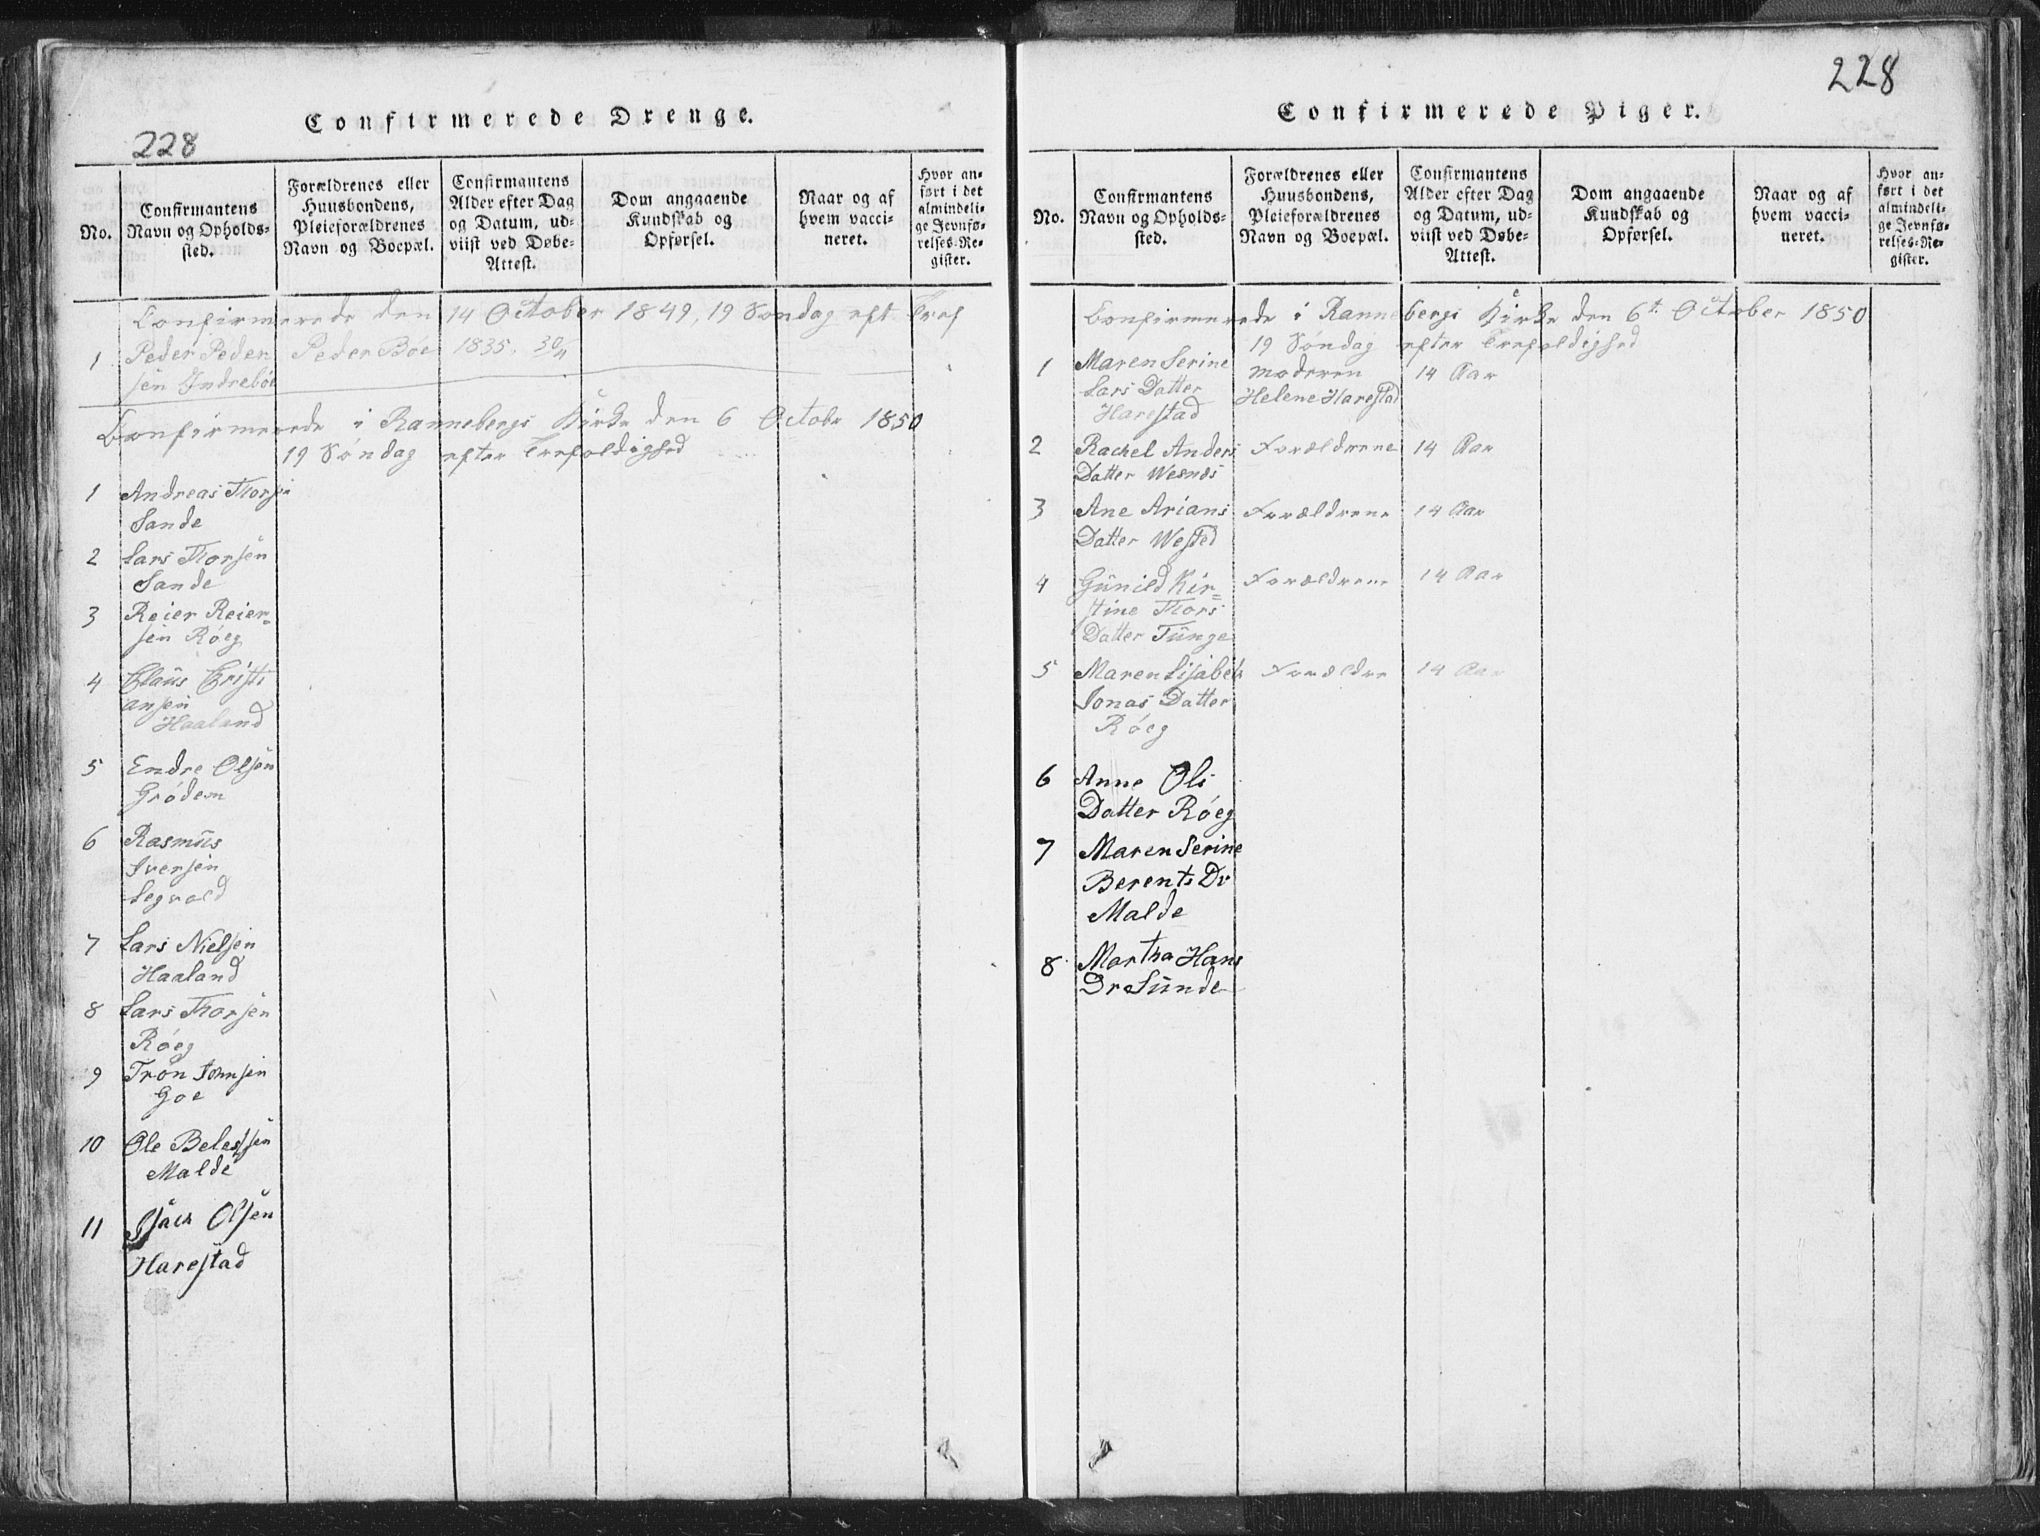 228
Confirmerede Drenge.
No.
Confirmantens
Navn og Opholds-
sted.
Forældrenes eller
Huusbondens,
Pleieforældrenes
Navn og Boepæl.
Confirmantens
Alder efter Dag
og Datum, ud-
viist ved Døbe-
Attest.
Dom angaaende
Kundskab og
Opførsel.
Naar og af
hvem vacci-
neret.
Hvor an-
ført i det
almindeli-
ge Jevnfø-
relses-Re-
gister.
Confirmerede den 14 October 1849, 19 Søndag eft. Tref
1 Peder Peder Peder Boe 1835. 30/11
sen Indrebøe
Confirmerede i Rannebergs Kirke den 6 Octobr 1850
19 Søndag efter Trefoldighed
1 Andreas Thorsen
Sande
2 Lars Thorsen
Sande
3 Reier Reier=
sen Røeg
4 Claus Cristi
ansen
Haaland
5 Endre Olsen
Grødem
6 Rasmus
Iversen
Segvold
7 Lars Nielsen
Haaland
8 Lars Thorsen
Røeg
9 Tron Johnsen
Goe
10 Ole
Malde
11 Isach Olsen
Harestad
228
Confirmerede Piger.
No.
Confirmantens
Navn og Opholds-
sted.
Forældrenes eller
Huusbondens,
Pleieforældrenes
Navn og Boepæl.
Confirmantens
Alder efter Dag
og Datum, ud-
viist ved Døbe-
Attest.
Dom angaaende
Kundskab og
Opførsel.
Naar og af
hvem vacci-
neret.
Hvor an-
ført i det
almindeli-
ge Jevnfø-
relses-Re-
gister.
Confirmerede i Rannebergs Kirke den 6t October 1850
19 Søndag efter Trefoldighed
1 Maren Serine Moderen 14 Aar
Lars Datter Helene Harestad
Harestad
2 Rachel Anders Forældrene 14 Aar
Datter Wesnes
3 Ane Arians Forældrene 14 Aar
Datter Wested
4 Gunild Kir= Forældrene 14 Aar
stine Thors
Datter Tunge
5 Maren Lisabeth Forældre 14 Aar
Jonas Datter
Røeg
6 Anne Ols
Datter Røeg
7 Maren Serine
Berents Dr
Malde
8 Martha Hans
Dr Sunde